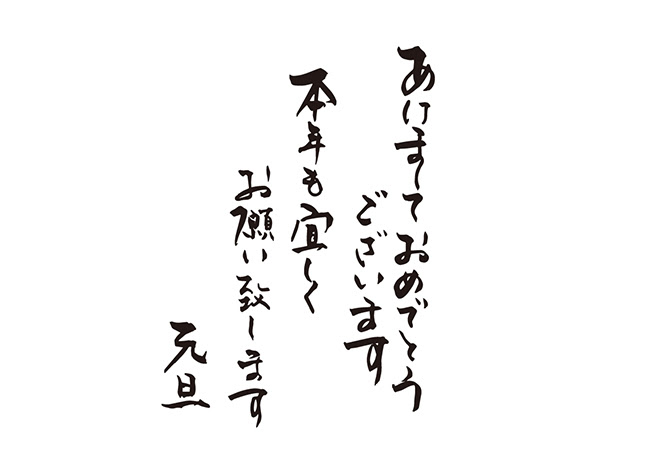 あけましておめでとう
ございます
本年も宜しく
お願い致します
元旦